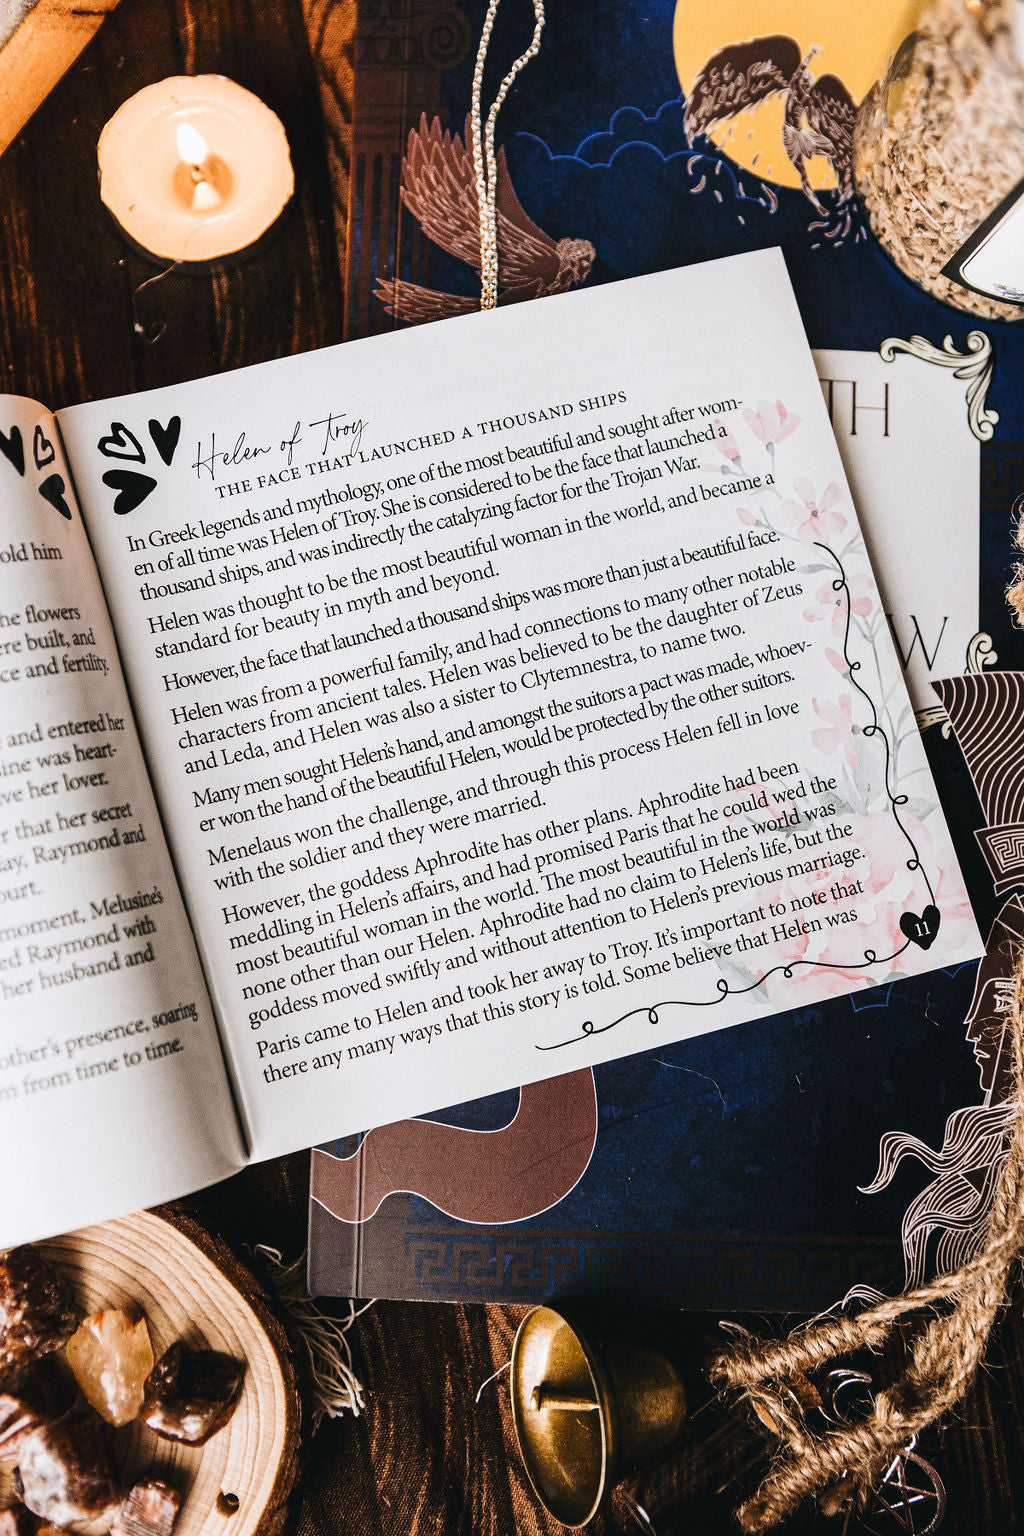 old him
he flowers
ere built, and
ce and fertility.
and entered her
sine was heart-
ve her lover.
r that her secret
lay, Raymond and
ourt.
moment, Melusine's
ed Raymond with
her husband and
other's presence, soaring
m from time to time.
Helen of Troy
THE FACE THAT LAUNCHED A THOUSAND SHIPS
In Greek legends and mythology, one of the most beautiful and sought after wom-
en of all time was Helen of Troy. She is considered to be the face that launched a
thousand ships, and was indirectly the catalyzing factor for the Trojan War.
Helen was thought to be the most beautiful woman in the world, and became a
standard for beauty in myth and beyond.
However, the face that launched a thousand ships was more than just a beautiful face.
Helen was from a powerful family, and had connections to many other notable
characters from ancient tales. Helen was believed to be the daughter of Zeus
and Leda, and Helen was also a sister to Clytemnestra, to name two.
Many men sought Helen's hand, and amongst the suitors a pact was made, whoev-
er won the hand of the beautiful Helen, would be protected by the other suitors.
Menelaus won the challenge, and through this process Helen fell in love
with the soldier and they were married.
However, the goddess Aphrodite has other plans. Aphrodite had been
meddling in Helen's affairs, and had promised Paris that he could wed the
most beautiful woman in the world. The most beautiful in the world was
none other than our Helen. Aphrodite had no claim to Helen's life, but the
goddess moved swiftly and without attention to Helen's previous marriage.
Paris came to Helen and took her away to Troy. It's important to note that
there any many ways that this story is told. Some believe that Helen was
11
TH
W